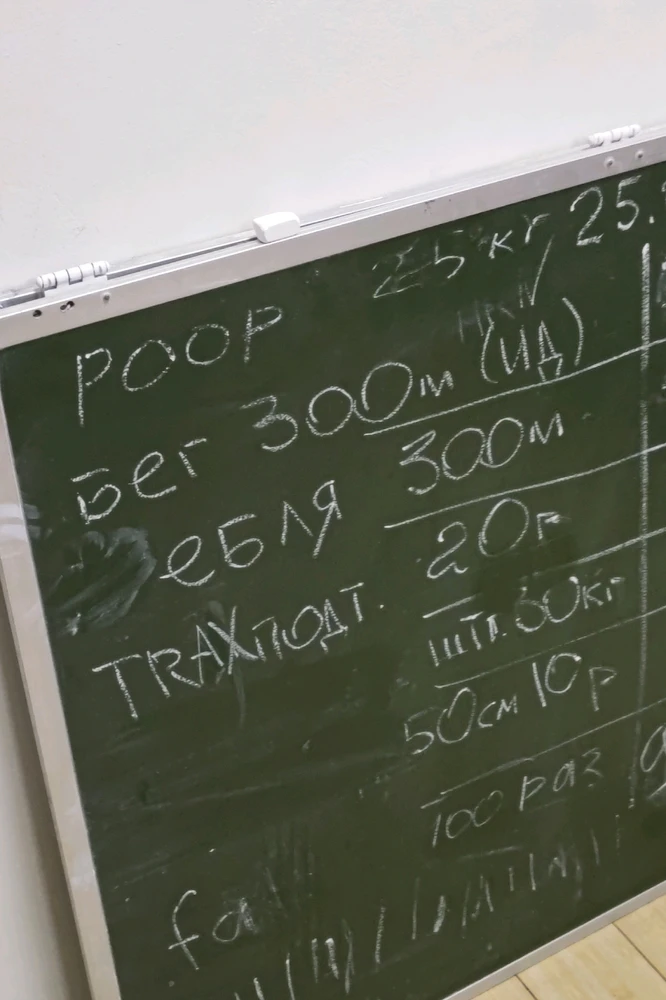 25 кг 25.
POOP
Бег 300м (ИД)
300м
еБЛЯ
20р
TRAXПОДТ.
шТ. 30кг
50см 10р
100 раз
fa